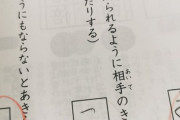 られるように相手のき
あいて
たりする）
うにもならないとあき